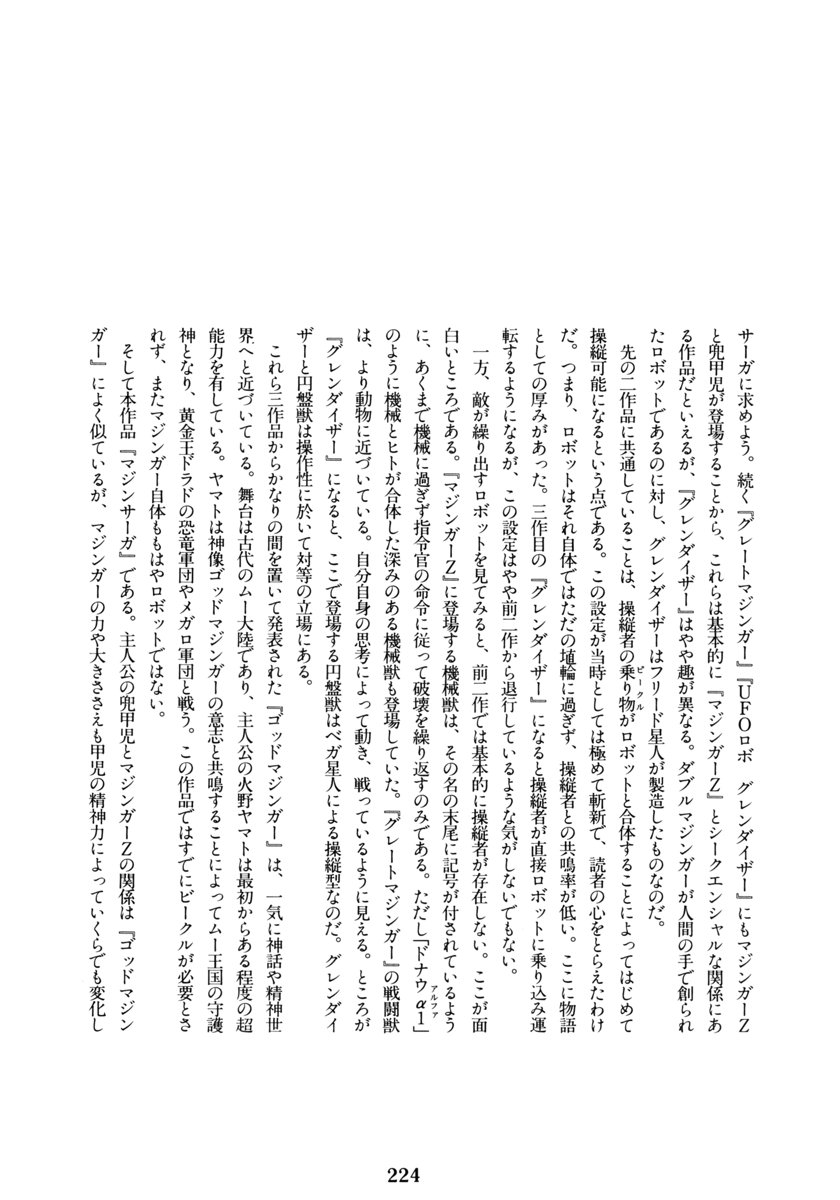 サーガに求めよう。続く『グレートマジンガー』『UFOロボ　グレンダイザー』にもマジンガーZ
と兜甲児が登場することから、これらは基本的に『マジンガーZ』とシークエンシャルな関係にあ
る作品だといえるが、『グレンダイザー』はやや趣が異なる。ダブルマジンガーが人間の手で創られ
たロボットであるのに対し、グレンダイザーはフリード星人が製造したものなのだ。
　先の二作品に共通していることは、操縦者の乗り物がロボットと合体することによってはじめて
ビークル
操縦可能になるという点である。この設定が当時としては極めて斬新で、読者の心をとらえたわけ
だ。つまり、ロボットはそれ自体ではただの埴輪に過ぎず、操縦者との共鳴率が低い。ここに物語
としての厚みがあった。三作目の『グレンダイザー』になると操縦者が直接ロボットに乗り込み運
転するようになるが、この設定はやや前二作から退行しているような気がしないでもない。
　一方、敵が繰り出すロボットを見てみると、前二作では基本的に操縦者が存在しない。ここが面
白いところである。『マジンガーZ』に登場する機械獣は、その名の末尾に記号が付されているよう
に、あくまで機械に過ぎず指令官の命令に従って破壊を繰り返すのみである。ただし「ドナウα1」
アルファ
のように機械とヒトが合体した深みのある機械獣も登場していた。『グレートマジンガー』の戦闘獣
は、より動物に近づいている。自分自身の思考によって動き、戦っているように見える。ところが
『グレンダイザー』になると、ここで登場する円盤獣はベガ星人による操縦型なのだ。グレンダイ
ザーと円盤獣は操作性に於いて対等の立場にある。
　これら三作品からかなりの間を置いて発表された『ゴッドマジンガー』は、一気に神話や精神世
界へと近づいている。舞台は古代のムー大陸であり、主人公の火野ヤマトは最初からある程度の超
能力を有している。ヤマトは神像ゴッドマジンガーの意志と共鳴することによってムー王国の守護
神となり、黄金王ドラドの恐竜軍団やメガロ軍団と戦う。この作品ではすでにビークルが必要とさ
れず、またマジンガー自体ももはやロボットではない。
　そして本作品『マジンサーガ』である。主人公の兜甲児とマジンガーZの関係は『ゴッドマジン
ガー』によく似ているが、マジンガーの力や大きささえも甲児の精神力によっていくらでも変化し
224